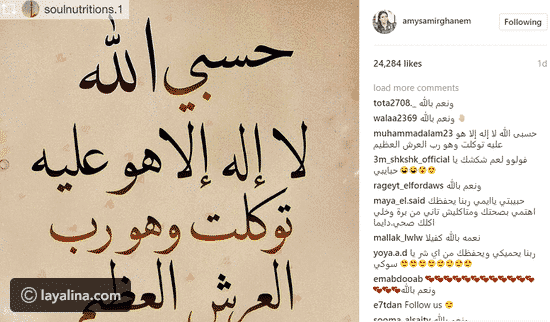 soulnutritions.1
حسبي الله
لا إله إلا هو عليه
توكلت وهو رب
العرش العظيم
layalina.com
amysamirghanem
Following
24,284 likes
1d
load more comments
tota2708._ ونعم بالله
walaa2369 ونعم بالله
muhammadalam23 حسبى الله لا إله إلا هو
عليه توكلت وهو رب العرش العظيم
3m_shkshk_official فولوو لعم شكشك يا
حبايبي
rageyt_elfordaws ونعم بالله
maya_el.said حبيبتي ياايمي ربنا يحفظك
اهتمي بصحتك ومتاكليش تاني من برة وخلي
اكلك صحي.دايما
mallak_lwlw نعمه بالله كفيلا
yoya.a.d ربنا يحميكي ويحفظك من اي شر يا
سوكي
emabdooab
ونعم بالله
e7tdan Follow us
sooma_alsaity ونعم بالله